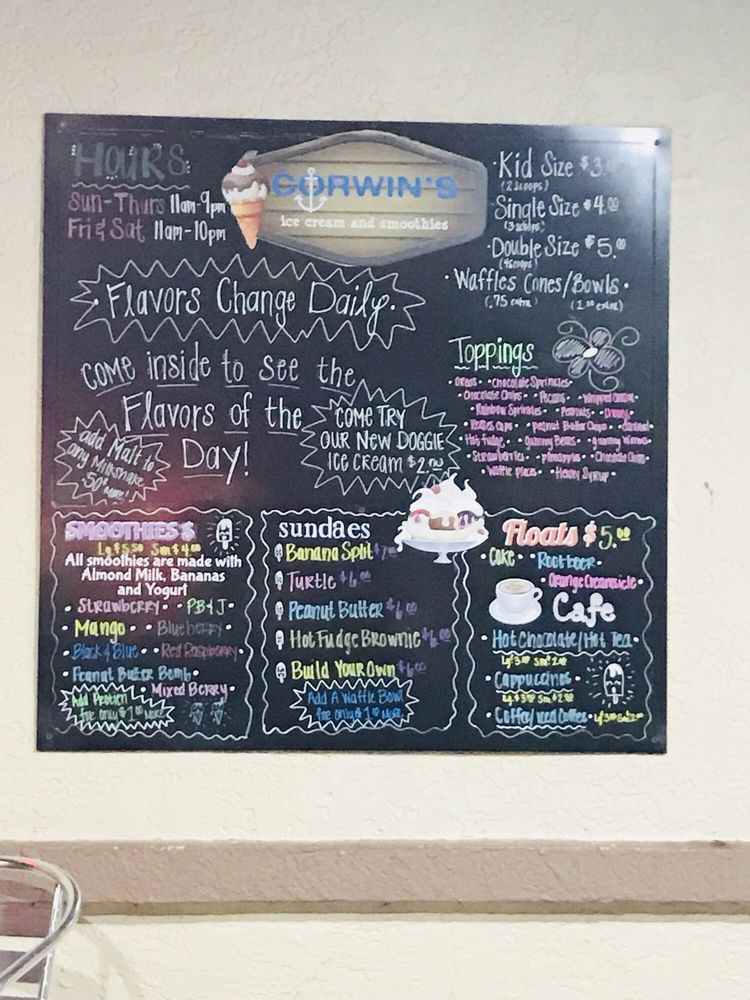 HOURS
Sun-Thurs 11am-9pm
Fri & Sat 11am-10pm
CORWIN'S
ice cream and smoothies
• Kid Size $3.
(2 scoops)
• Single Size $4.00
(3 scoops)
• Double Size $5.00
(4 scoops)
• Waffles Cones/Bowls •
(.75 extra) (1.00 extra)
• Flavors Change Daily •
COME inside to see the
Flavors of the
Day!
add Malt to
any Milkshake
50¢ more!
COME TRY
OUR NEW DOGGIE
ICE CREAM $2.00
Toppings
• Oreos • Chocolate Sprinkles
Chocolate Chips • Pecans • Whipped Cream
• Rainbow Sprinkles • Peanuts •
Reeses Cups • Peanut Butter Chips • Caramel
Hot fudge • Gummy Bears • gummy Worms
• Strawberries • pineapples • Chocolate
Waffle Pieces •
SMOOTHIES
Lg $5.50 Sm $4.00
All smoothies are made with
Almond Milk, Bananas
and Yogurt
• Strawberry • PB & J •
Mango • Blueberry •
• Black & Blue • Red Raspberry
• Peanut Butter Bomb •
• Mixed Berry •
Add Protein
for only $1.00 MORE
sundaes
Banana Split $7.
Turtle $6.00
Peanut Butter $6.00
Hot Fudge Brownie $6.00
Build Your Own $6.00
Add A Waffle Bowl
for only $1.00 MORE
Floats $5.00
• Coke • Rootbeer
• Orange Creamsicle •
Cafe
• Hot Chocolate/Hot Tea •
Lg $3.00 Sm $2.00
• Cappuccinos •
Lg $3.00 Sm $2.00
• Coffee/Iced Coffee • Lg $3.00 Sm $2.00